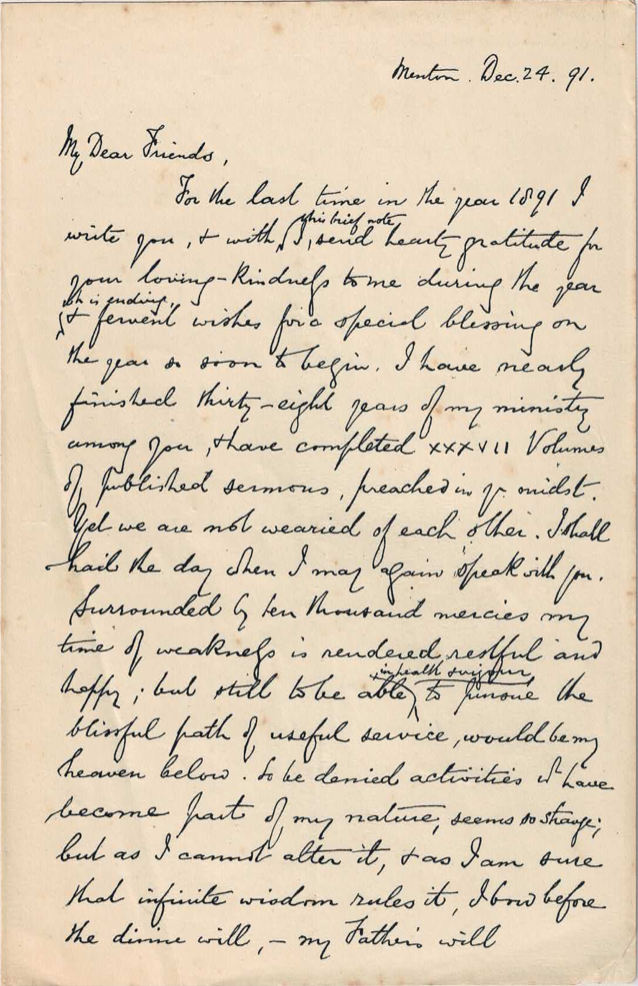 Menton. Dec. 24. 91.
My Dear Friends,
For the last time in the year 1891 I
this brief note
write you, & with I, send hearty gratitude for
your loving-kindness to me during the year
wh is ending,
& fervent wishes for a special blessing on
the year so soon to begin. I have nearly
finished thirty-eight years of my ministry
among you, & have completed XXXVII Volumes
of published sermons, preached in yr. midst.
Yet we are not wearied of each other. I shall
hail the day when I may again speak with you.
Surrounded by ten thousand mercies my
time of weakness is rendered restful and
happy; but still to be able to pursue the
in health & vigour
blissful path of useful service, would be my
heaven below. To be denied activities wh have
become part of my nature, seems so strange;
but as I cannot alter it, & as I am sure
that infinite wisdom rules it, I bow before
the divine will, – my Father's will